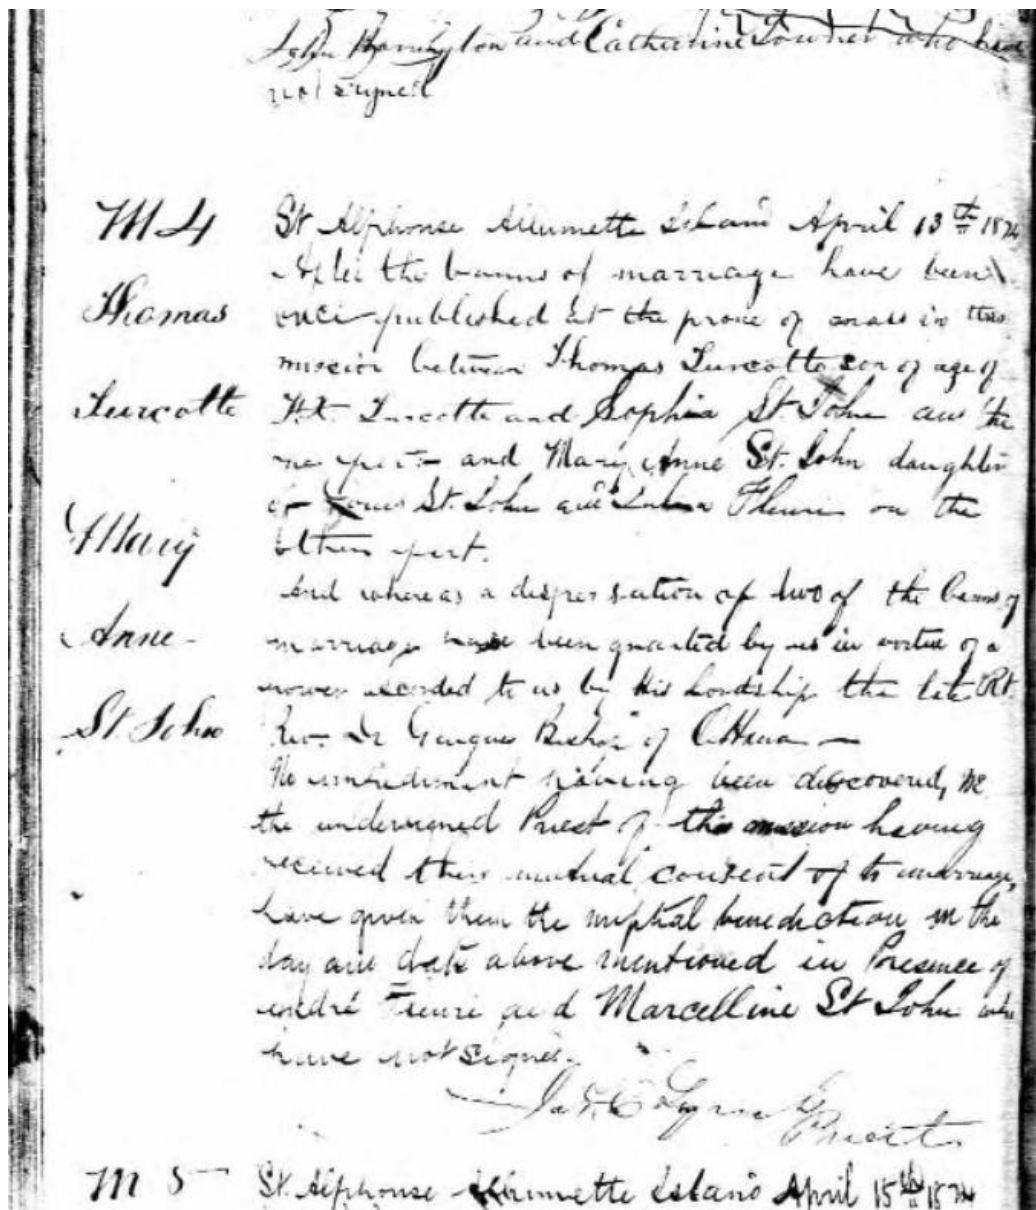 John Harrington and Catherine Downer who have
not signed
M 4
Thomas
Turcotte
Mary
Anne
St. John
St Alphonse Allumette Island April 13th 1874
After the banns of marriage have been
once published at the prone of mass in this
mission between Thomas Turcotte son of age of
F.X. Turcotte and Sophia St. John on the
one part and Mary Anne St. John daughter
of St. John and Fleuri on the
other part.
And whereas a dispensation of two of the banns of
marriage have been granted by us in virtue of a
power accorded to us by His Lordship the late Rt.
Rev. Dr Guigues Bishop of Ottawa —
No impediment having been discovered, we
the undersigned Priest of this mission having
received their mutual consent of to marriage,
have given them the nuptial benediction on the
day and date above mentioned in Presence of
André Fleuri and Marcelline St John who
have not signed.
Jas. C Lynch
Priest
M 5
St. Alphonse Allumette Island April 15th 1874